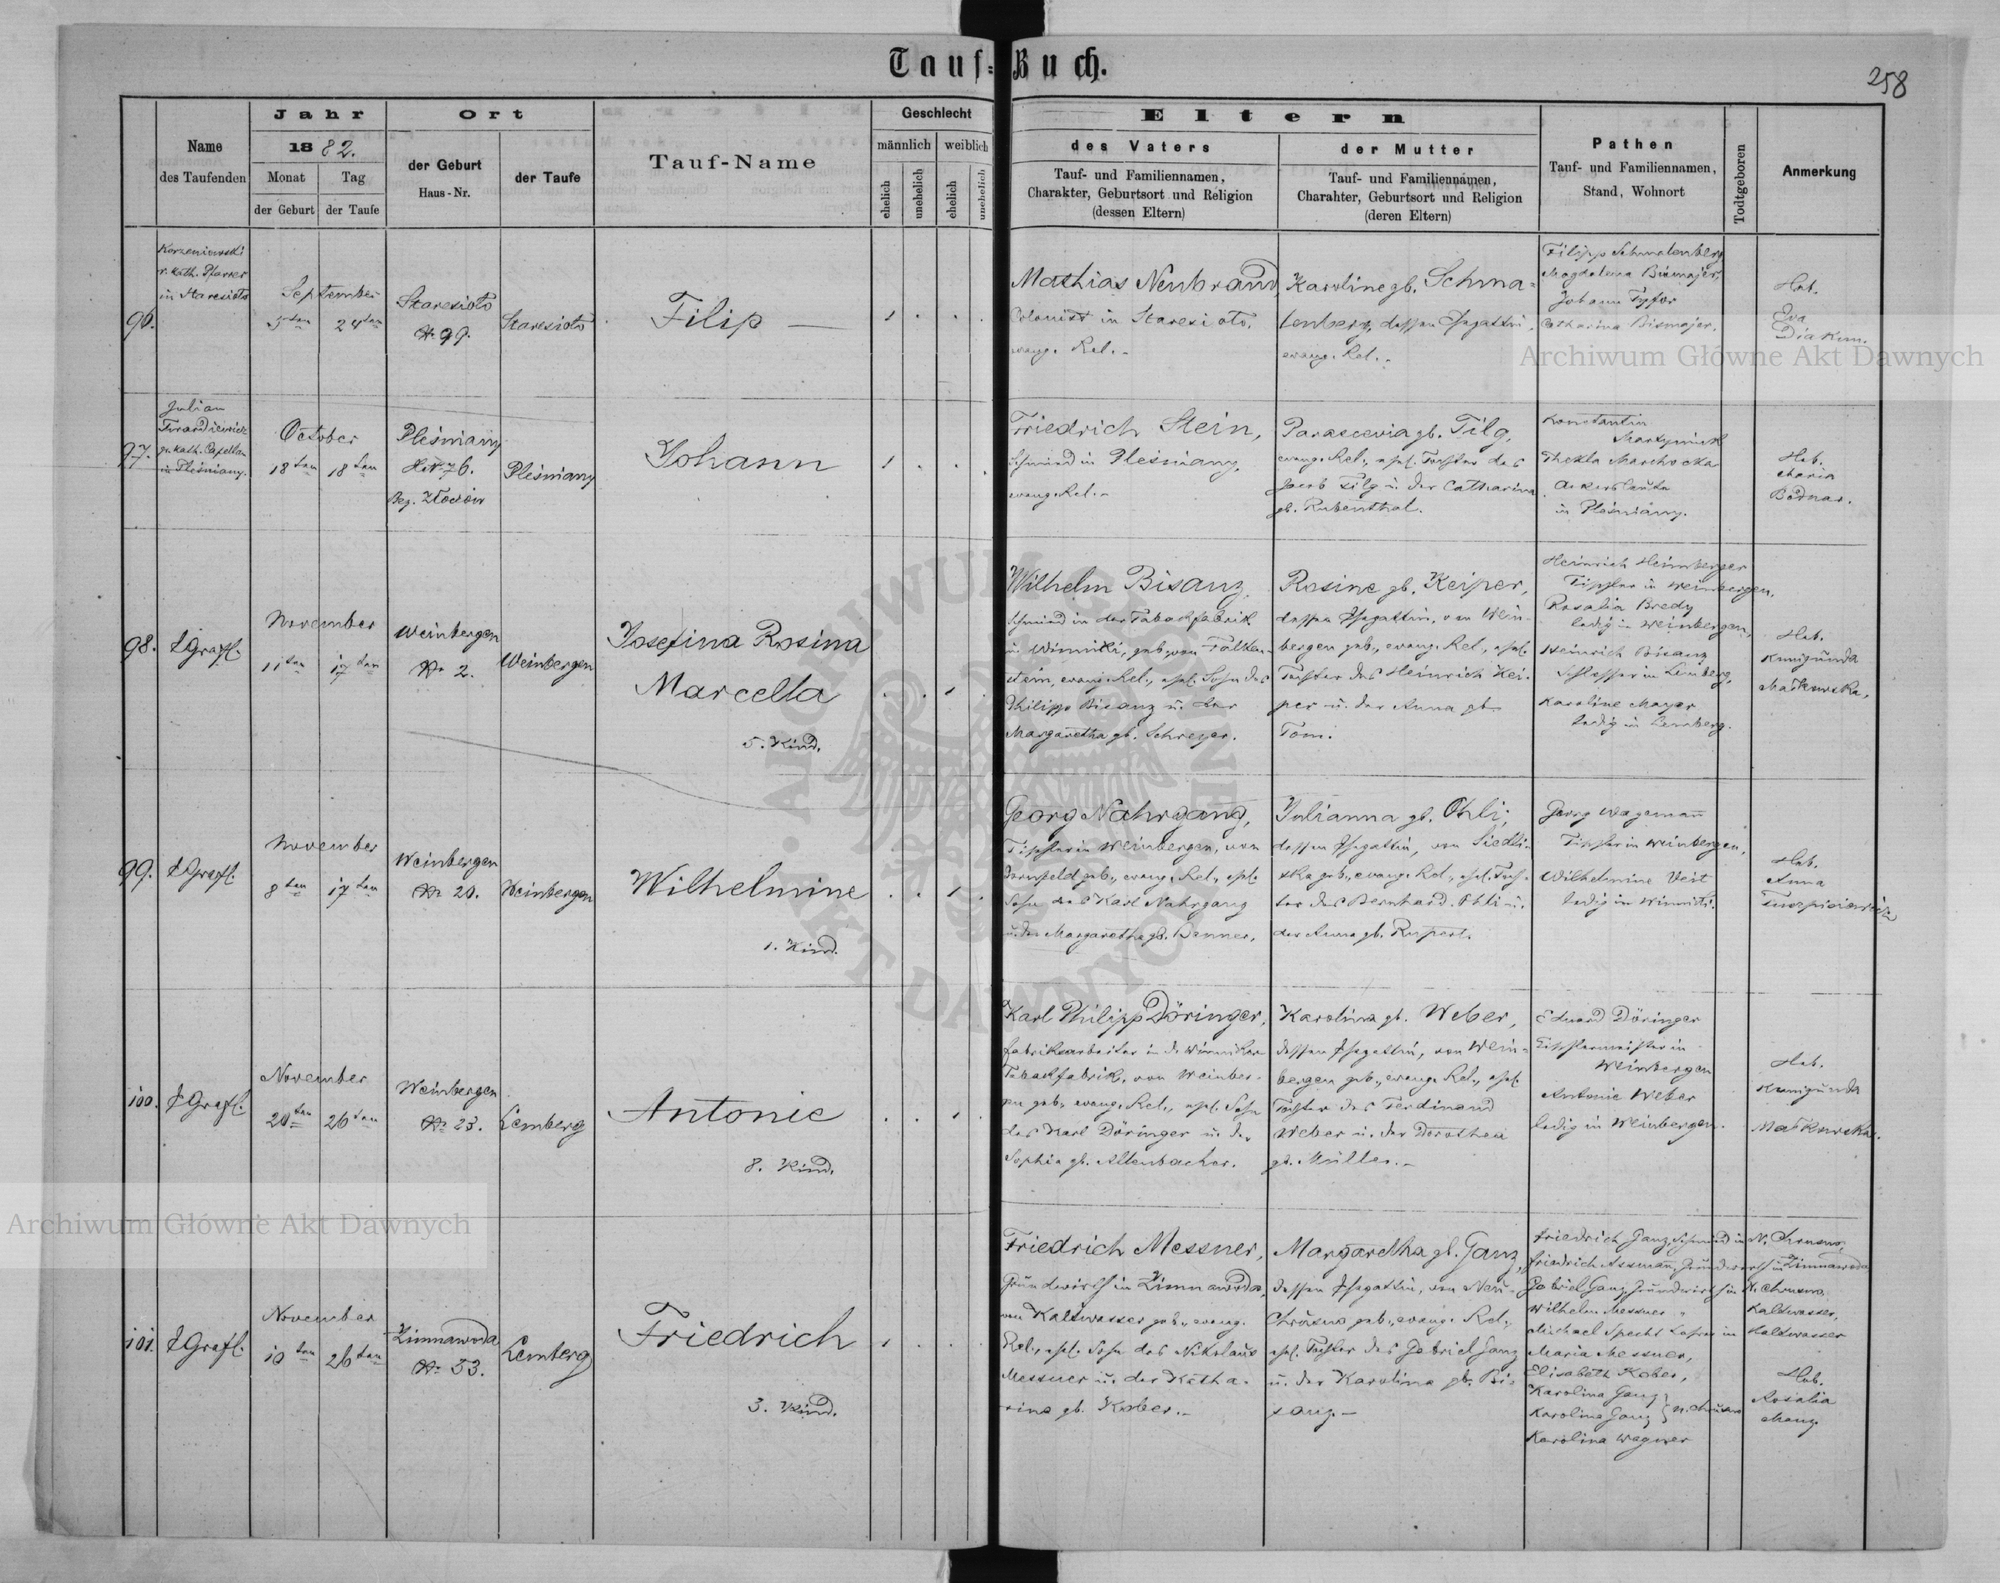 Tauf-Buch.
258
Name
des Taufenden
Jahr
1882.
Monat
Tag
der Geburt
der Taufe
Ort
der Geburt
Haus-Nr.
der Taufe
Tauf-Name
Geschlecht
männlich
weiblich
ehelich
unehelich
ehelich
unehelich
Eltern
des Vaters
Tauf- und Familiennamen,
Charakter, Geburtsort und Religion
(dessen Eltern)
der Mutter
Tauf- und Familiennamen,
Charahter, Geburtsort und Religion
(deren Eltern)
Pathen
Tauf- und Familiennamen,
Stand, Wohnort
Todtgeboren
Anmerkung
96.
Korzeniowski
r. kath. Pfarrer
in Staresioto
September
5ten
24ten
Staresioto
Nr 99.
Staresioto
Filip —
Mathias Neubrand,
Colonist in Staresioto,
evang. Rel. -
Karoline gb. Schma-
lenberg, dessen Ehegattin,
evang. Rel. -
Filipp Schmalenberg
Magdalena Bismajer,
Johann
Catharina Bismajer.
Heb.
Eva
Diakun.
97.
Julian
gr. kath. Capellan
in Pleśniany.
October
18ten
18ten
Pleśniany
Nr 76.
Bez. Złoczów
Pleśniany
Johann
Friedrich Stein,
Schmied in Pleśniany,
evang. Rel. -
Parascevia gb. Filg,
evang. Rel., ehel. Tochter des
Jacob Filg u. der Catharina
gb. Rubenthal.
Konstantin
Thekla
Ackersleute
in Pleśniany.
Heb.
Maria
Bodnar.
98.
November
11ten
17ten
Weinbergen
Nr 2.
Weinbergen
Josefina Rosina
Marcella
5. Kind.
Wilhelm Bisanz,
Schmied in der Tabackfabrik
in Winniki, geb. von Falken-
stein, evang. Rel., ehel. Sohn des
Philipp Bisanz u. der
Margaretha gb. Schreyer.
Rosine gb. Keiper,
dessen Ehegattin, von Wein-
bergen geb., evang. Rel., ehel.
Tochter des Heinrich Kei-
per u. der Anna gb.
Tom.
Heinrich Heimberger
Tischler in Weinbergen,
Rosalia Bredy
ledig in Weinbergen,
Heinrich Bisanz
Schlosser in Lemberg,
Karoline Mayer
ledig in Lemberg.
Heb.
Kunigunda
Maśkowska.
99.
November
8ten
17ten
Weinbergen
Nr 20.
Weinbergen
Wilhelmine
1. Kind.
Georg Nahrgang,
Tischler in Weinbergen, von
Dornfeld geb., evang. Rel., ehel.
Sohn des Karl Nahrgang
u. der Margaretha gb. Benner.
Julianna gb. Ohli,
dessen Ehegattin, von Siedli-
ska geb., evang. Rel., ehel. Toch-
ter des Bernhard Ohli u.
der Anna gb. Rupert.
Georg Wagemann
Tischler in Weinbergen,
Wilhelmine Veit
ledig in Winniki.
Heb.
Anna
100.
November
20ten
26ten
Weinbergen
Nr 23.
Lemberg
Antonie
8. Kind.
Karl Philipp Döringer,
Fabriksarbeiter in d. Winniker
Tabackfabrik, von Weinber-
gen geb., evang. Rel., ehel. Sohn
des Karl Döringer u. der
Sophia gb. Altenbacher.
Karolina gb. Weber,
dessen Ehegattin, von Wein-
bergen geb., evang. Rel., ehel.
Tochter des Ferdinand
Weber u. der Dorothea
gb. Müller. -
Eduard Döringer
Tischlermeister in
Weinbergen
Antonie Weber
ledig in Weinbergen.
Heb.
Kunigunda
Maśkowska.
101.
November
10ten
26ten
Zimnawoda
Nr 33.
Lemberg
Friedrich
3. Kind.
Friedrich Messner,
Grundwirth in Zimnawoda,
von Kaltwasser geb., evang.
Rel., ehel. Sohn des Nikolaus
Messner u. der Katha-
rina gb. Kober. -
Margaretha gb. Ganz,
dessen Ehegattin, von Neu-
Chrusno geb., evang. Rel.,
ehel. Tochter des Gabriel Ganz
u. der Karolina gb. Bi-
sanz. -
Friedrich Ganz, Schmied in N. Chrusno,
Friedrich Assmann, Grundwirth in Zimnawoda
Gabriel Ganz, Grundwirth in N. Chrusno,
Wilhelm Messner " Kaltwasser,
Michael Specht Lehrer in Kaltwasser
Maria Messner,
Elisabeth Kober,
Karolina Ganz
Karolina Ganz } N. Chrusno
Karolina Wagner
Heb.
Rosalia
Manz.
Archiwum Główne Akt Dawnych
Archiwum Główne Akt Dawnych
ARCHIWUM GŁÓWNE AKT DAWNYCH